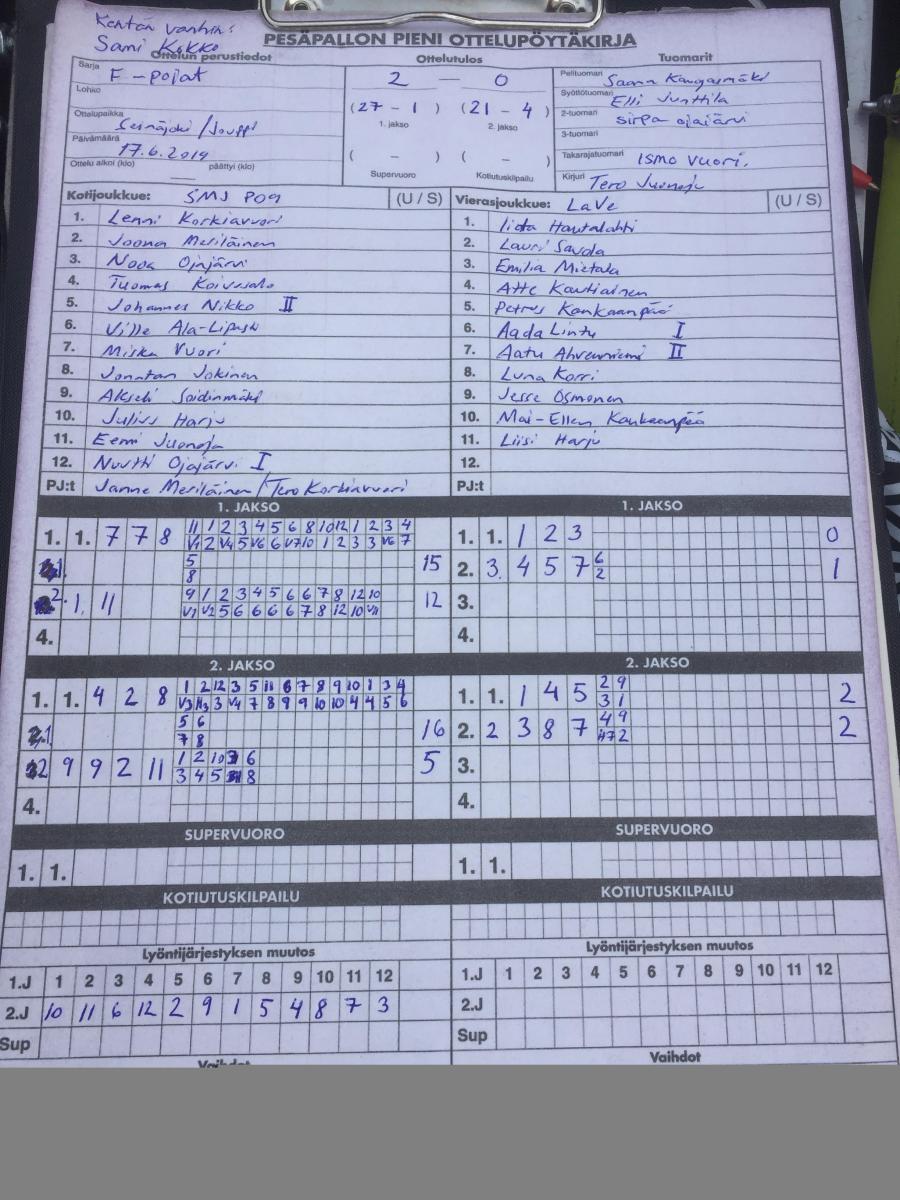 Kentän vanhin:
Sami Kokko
PESÄPALLON PIENI OTTELUPÖYTÄKIRJA
Ottelun perustiedot
Ottelutulos
Tuomarit
Sarja F-pojat
Lohko
Ottelupaikka Seinäjoki / Jouppi
Päivämäärä 17.6.2019
Ottelu alkoi (klo) päättyi (klo)
2 — 0
(27 – 1) (21 – 4)
1. jakso 2. jakso
( – ) ( – )
Supervuoro Kotiutuskilpailu
Pelituomari Saana Kangasmäki
Syöttötuomari Elli Junttila
2-tuomari Sirpa Ojajärvi
3-tuomari
Takarajatuomari Ismo Vuori.
Kirjuri Tero Juonoja
Kotijoukkue: SMJ P09 (U / S)
1. Lenni Korkiavuori
2. Joona Meriläinen
3. Nooa Ojajärvi
4. Tuomas Koivusalo
5. Johannes Nikko II
6. Ville Ala-Lipasti
7. Miska Vuori
8. Joonatan Jokinen
9. Akseli Soidinmäki
10. Julius Harju
11. Eemi Juonoja
12. Nuutti Ojajärvi I
PJ:t Janne Meriläinen / Tero Korkiavuori
Vierasjoukkue: LaVe (U / S)
1. Iida Hautalahti
2. Lauri Savola
3. Emilia Mietala
4. Atte Kautiainen
5. Petrus Kankaanpää
6. Aada Lintu I
7. Aatu Ahvenniemi II
8. Luna Korri
9. Jesse Osmonen
10. Mai-Ellen Kankaanpää
11. Liisi Harju
12.
PJ:t
1. JAKSO
1. 1. 7 7 8 11 1 2 3 4 5 6 8 10 12 1 2 3 4
V1 2 V4 5 V6 6 V7 10 1 2 3 3 V6 7
5 15
8
2. 1. 11 9 1 2 3 4 5 6 6 7 8 12 10 12
V1 V2 5 6 6 6 6 7 8 12 10 V11
4.
1. JAKSO
1. 1. 1 2 3 0
2. 3. 4 5 7 6 1
2
3.
4.
2. JAKSO
1. 1. 4 2 8 1 2 12 3 5 11 6 7 8 9 10 1 3 4
V3 3 V4 7 8 9 9 10 10 4 4 5 6
5 6 16
7 8
2 9 9 2 11 1 2 10 6 5
3 4 5 8
4.
2. JAKSO
1. 1. 1 4 5 2 9 2
3 1
2. 2 3 8 7 4 9 2
2
3.
4.
SUPERVUORO
1. 1.
SUPERVUORO
1. 1.
KOTIUTUSKILPAILU
KOTIUTUSKILPAILU
Lyöntijärjestyksen muutos
1.J 1 2 3 4 5 6 7 8 9 10 11 12
2.J 10 11 6 12 2 9 1 5 4 8 7 3
Sup
Lyöntijärjestyksen muutos
1.J 1 2 3 4 5 6 7 8 9 10 11 12
2.J
Sup
Vaihdot
Vaihdot